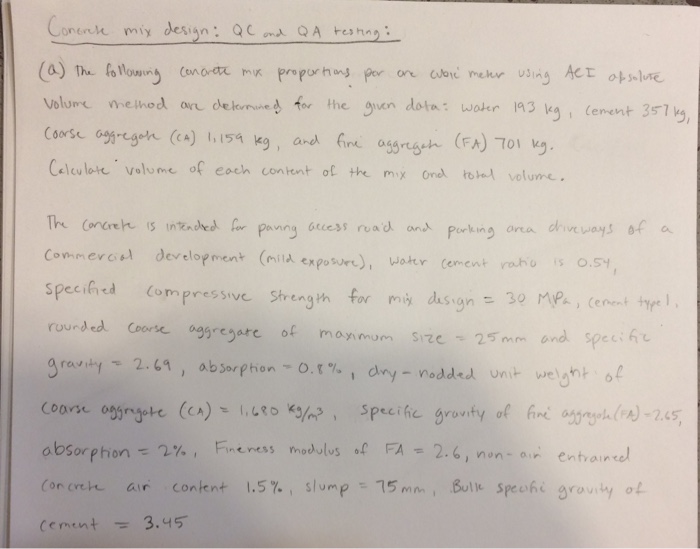 Concrete mix design: QC and QA testing:
(a) The following concrete mix proportions per one cubic meter using ACI absolute
volume method are determined for the given data: water 193 kg, cement 357 kg,
Coarse aggregate (CA) 1,159 kg, and fine aggregate (FA) 701 kg.
Calculate volume of each content of the mix and total volume.
The concrete is intended for paving access road and parking area driveways of a
Commercial development (mild exposure), water cement ratio is 0.54,
specified compressive strength for mix design = 30 MPa, cement type I,
rounded coarse aggregate of maximum size = 25 mm and specific
gravity = 2.69, absorption = 0.8%, dry-rodded unit weight of
coarse aggregate (CA) = 1,680 kg/m³, specific gravity of fine aggregate (FA) = 2.65,
absorption = 2%, Fineness modulus of FA = 2.6, non-air entrained
concrete air content 1.5%, slump = 75 mm, Bulk specific gravity of
cement = 3.45